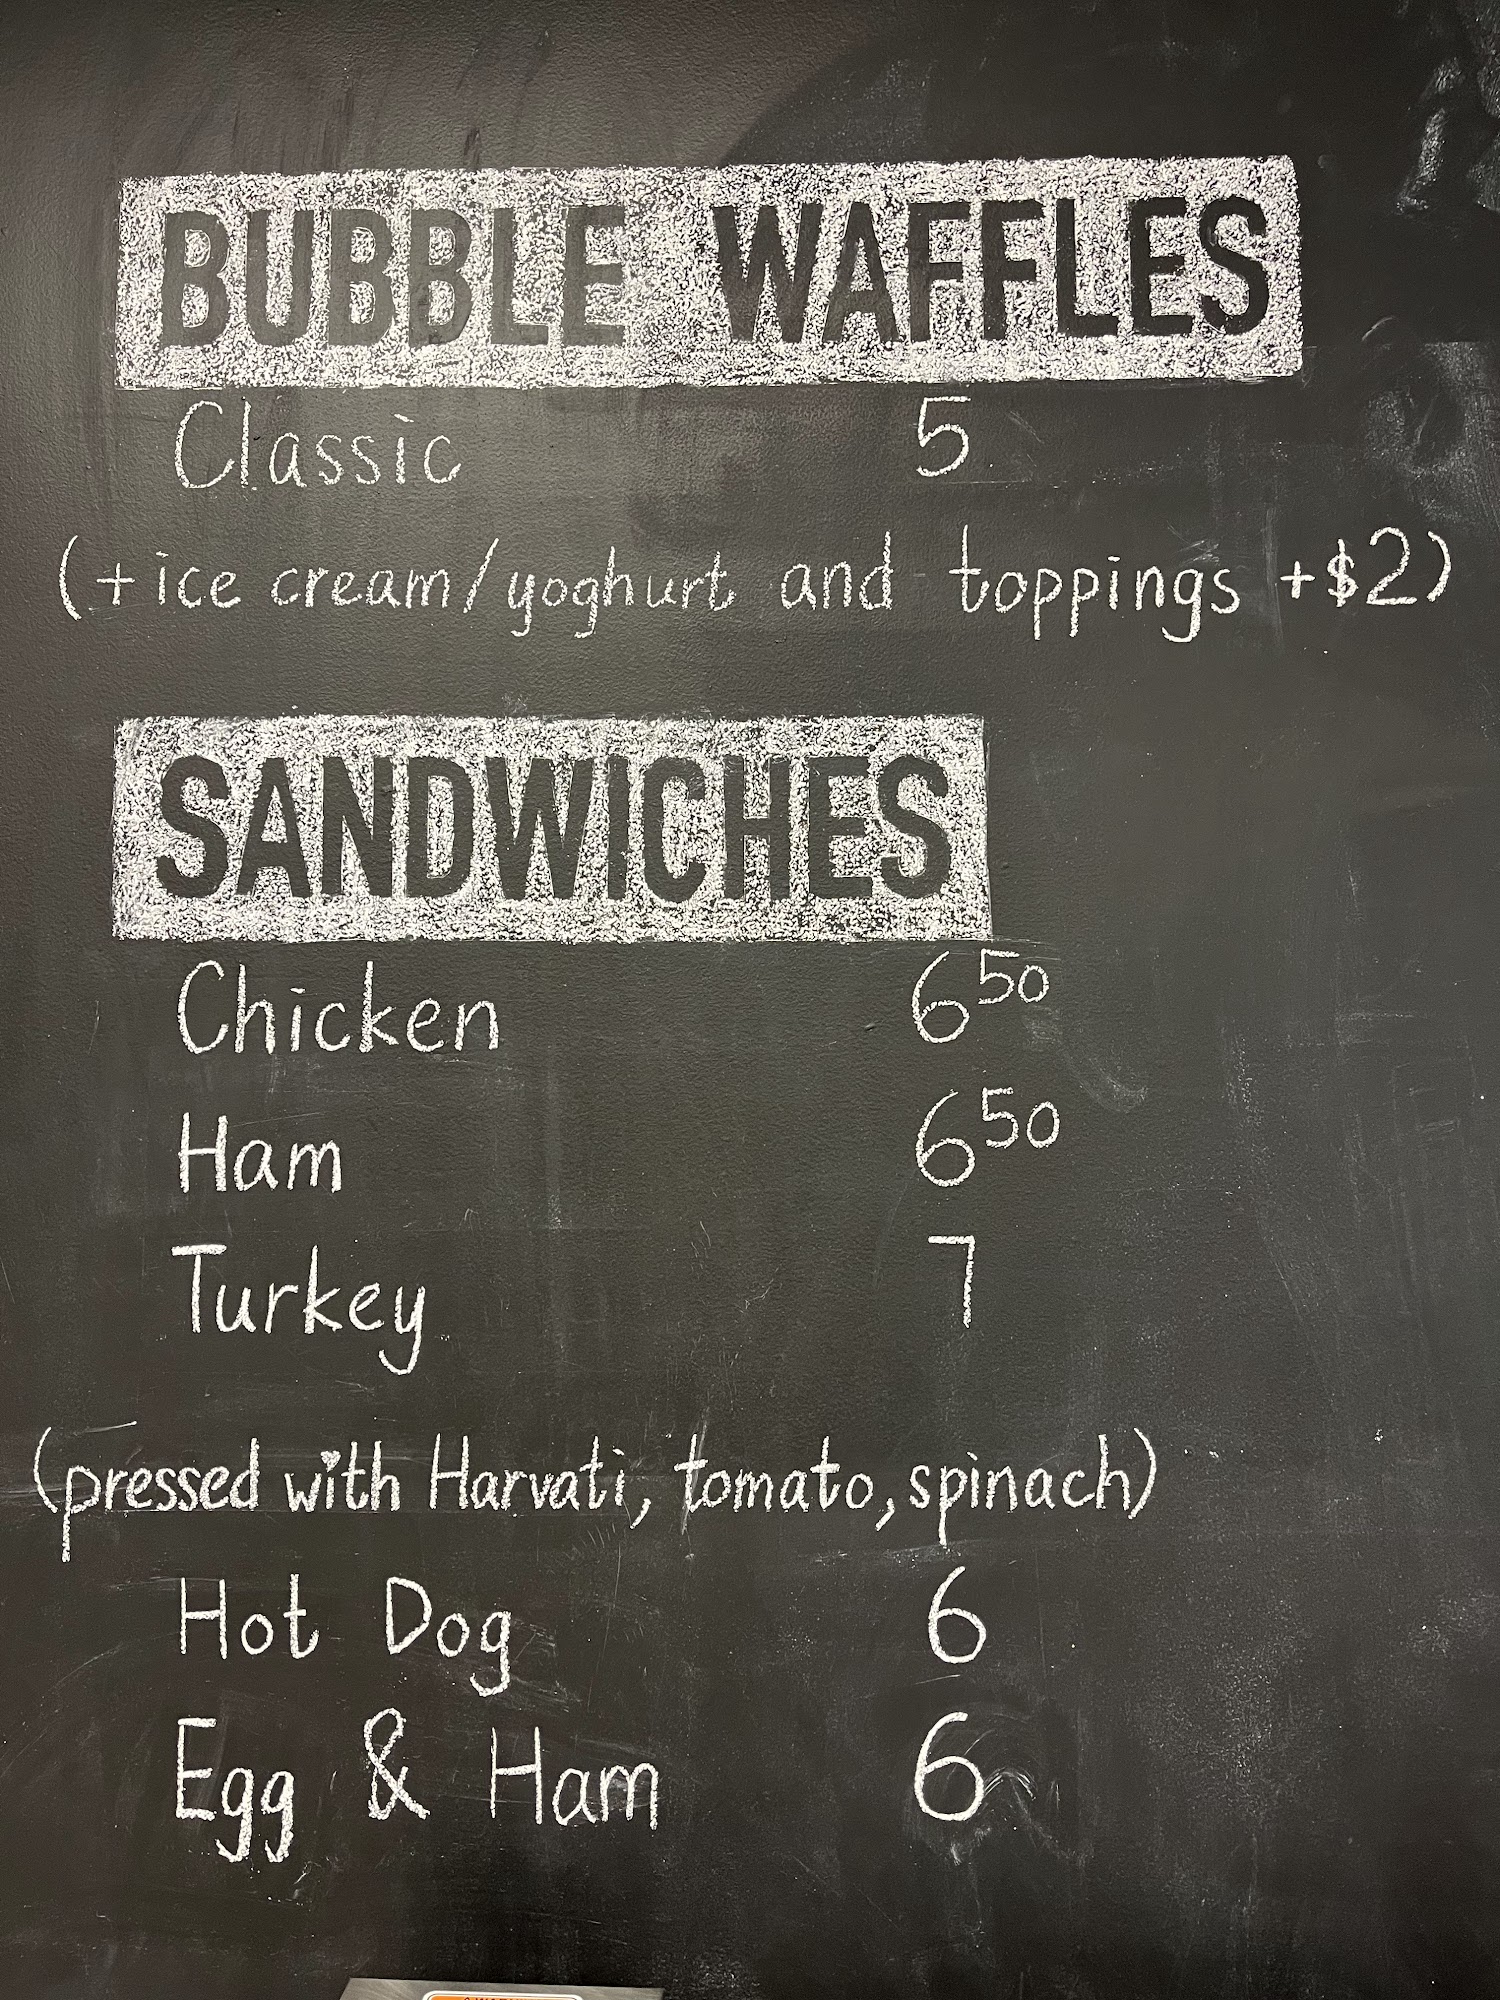 BUBBLE WAFFLES
Classic 5
(+ice cream/yoghurt and toppings +$2)
SANDWICHES
Chicken 6 50
Ham 6 50
Turkey 7
(pressed with Harvati, tomato, spinach)
Hot Dog 6
Egg & Ham 6